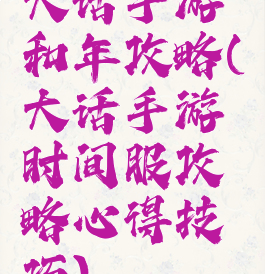 大话手游
和年攻略(
大话手游
时间服攻
略心得技
巧)